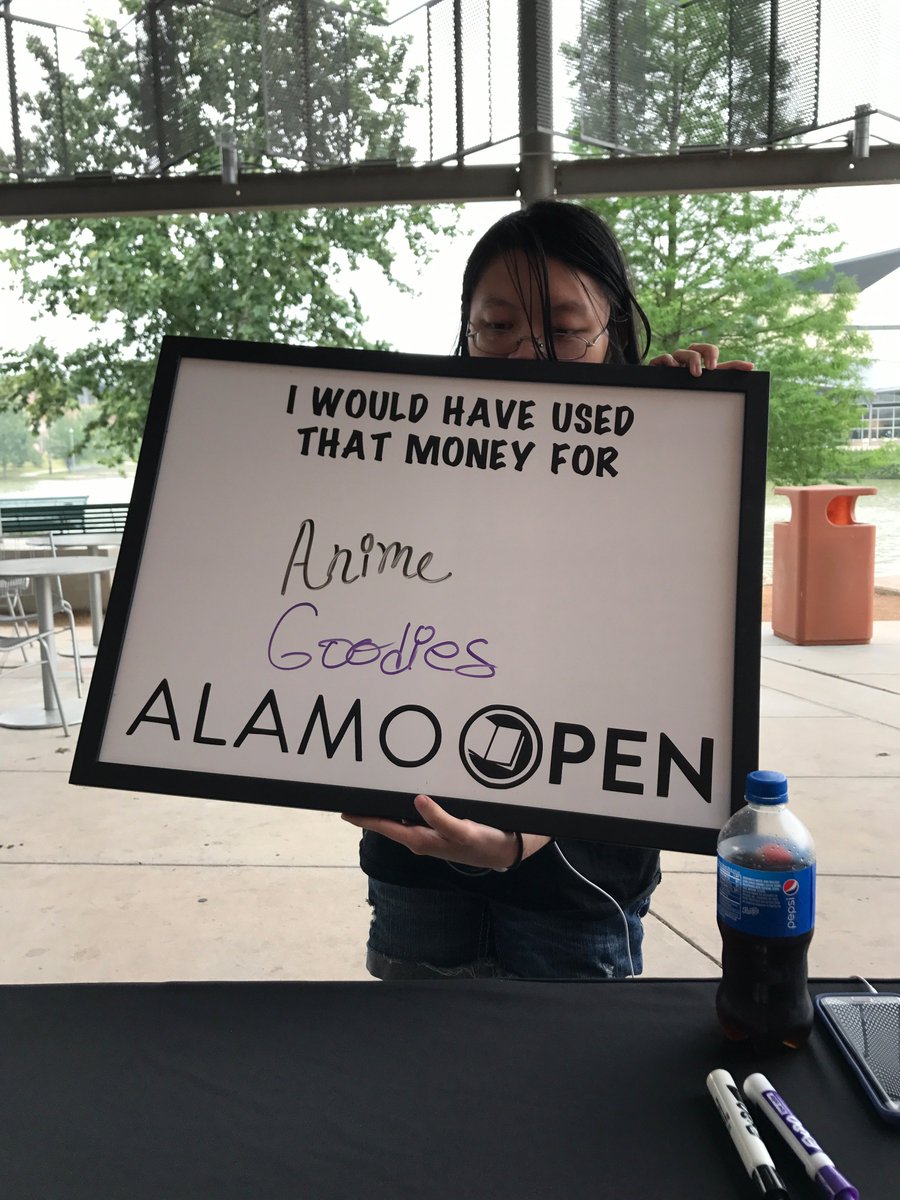 I WOULD HAVE USED
THAT MONEY FOR
Anime
Goodies
ALAMO OPEN
pepsi